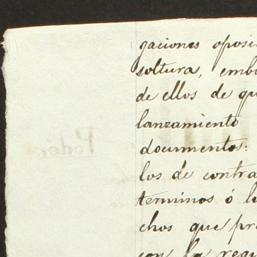 gaciones oposi
soltura, emb
de ellos de qu
lanzamiento
documento:
los de contra
terminos ó l
chos que pr
con la requ